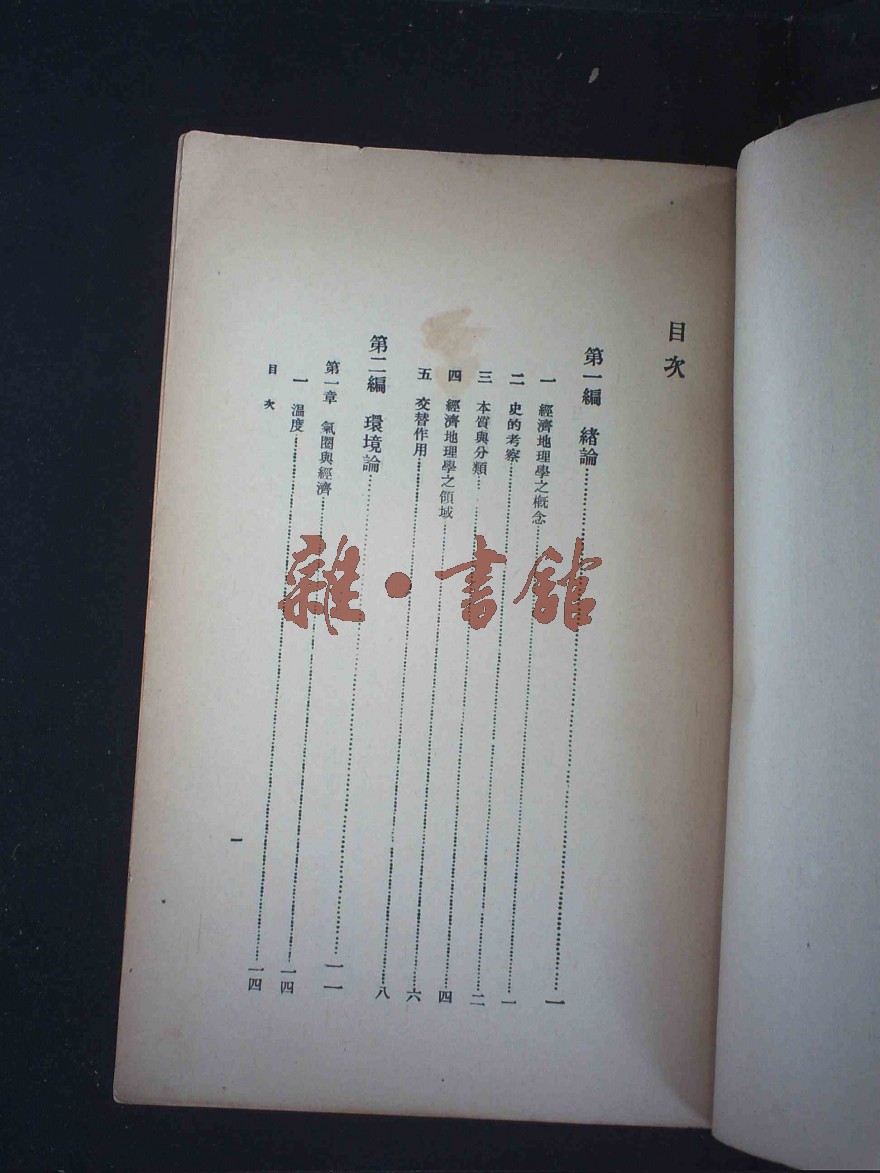 目次
第一編 緒論……一
一 經濟地理學之概念……一
二 史的考察……二
三 本質與分類……四
四 經濟地理學之領域……六
五 交替作用……八
第二編 環境論……一一
第一章 氣圈與經濟……一四
一 溫度……一四
目次 一
雜·書館